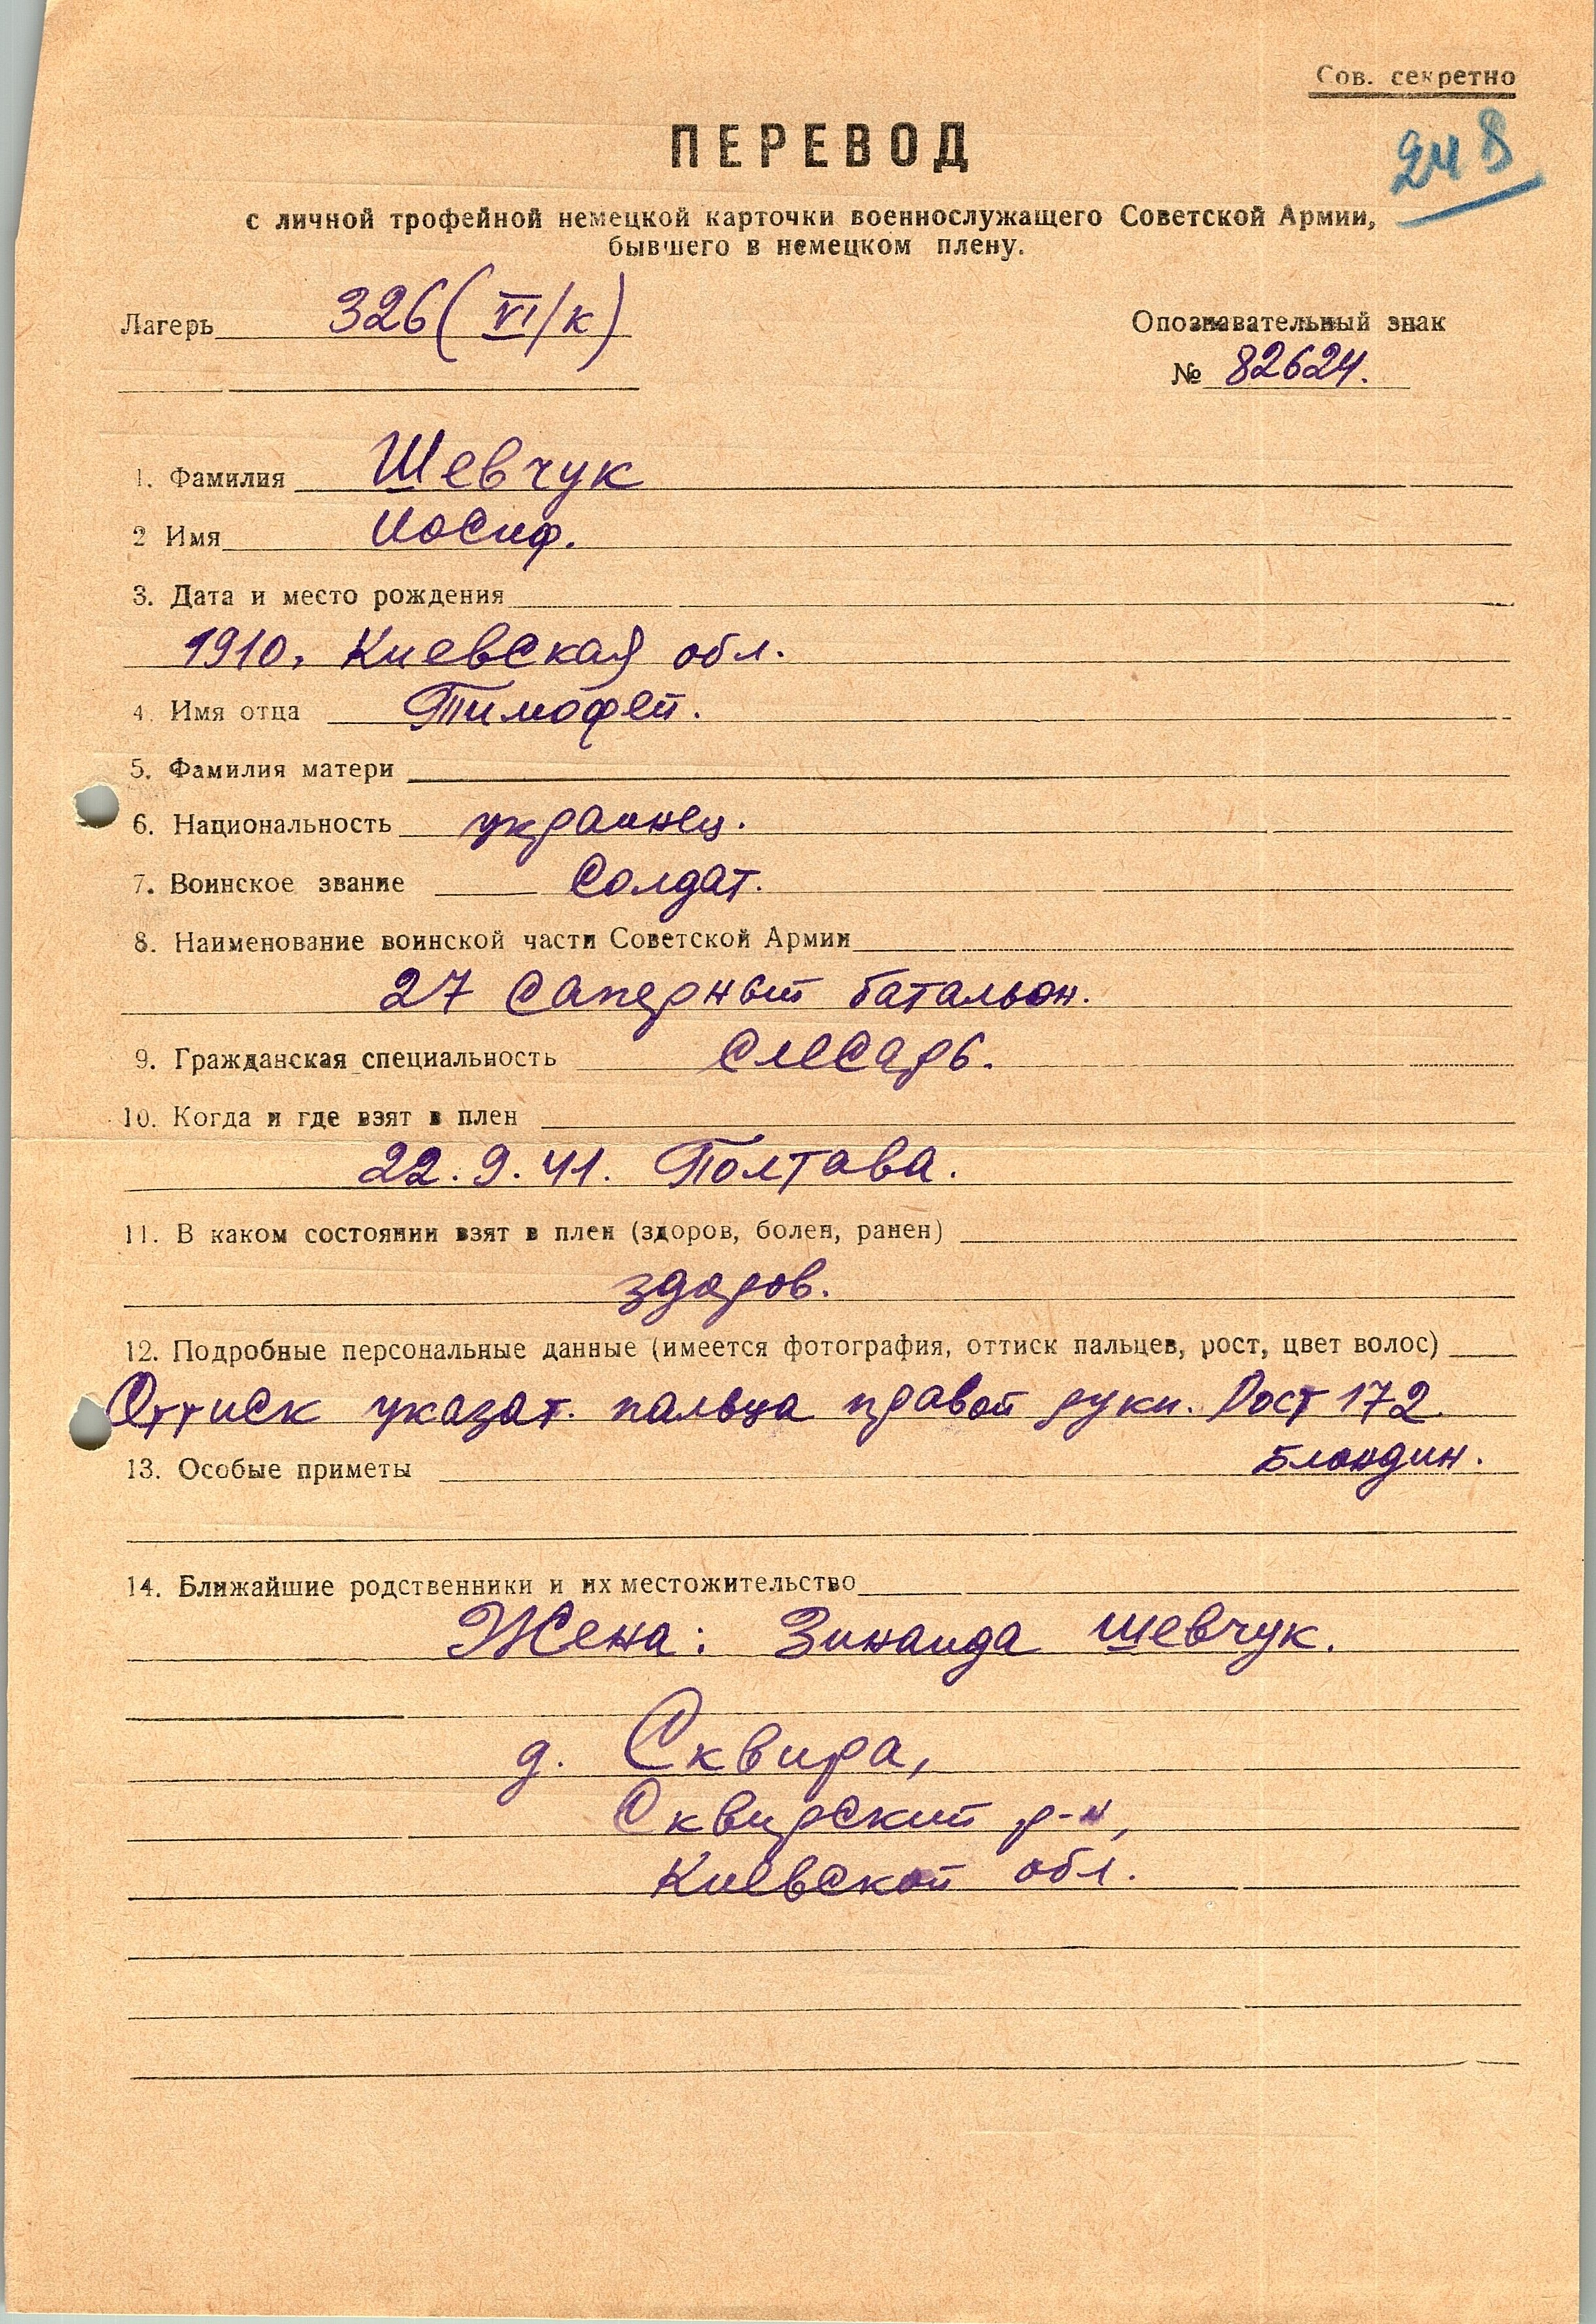 Сов. секретно
248
ПЕРЕВОД
с личной трофейной немецкой карточки военнослужащего Советской Армии,
бывшего в немецком плену.
Лагерь 326 (VI/к)
Опознавательный знак
№ 82624.
1. Фамилия Шевчук
2 Имя Иосиф.
3. Дата и место рождения
1910, Киевская обл.
4. Имя отца Тимофей.
5. Фамилия матери
6. Национальность украинец.
7. Воинское звание Солдат.
8. Наименование воинской части Советской Армии
27 Саперный батальон.
9. Гражданская специальность Слесарь.
10. Когда и где взят в плен
22.9.41. Полтава.
11. В каком состоянии взят в плен (здоров, болен, ранен)
здоров.
12. Подробные персональные данные (имеется фотография, оттиск пальцев, рост, цвет волос)
Оттиск указат. пальца правой руки. Рост 172.
Блондин.
13. Особые приметы
14. Ближайшие родственники и их местожительство
Жена: Зинаида Шевчук.
д. Сквира,
Сквирский р-н,
Киевской обл.